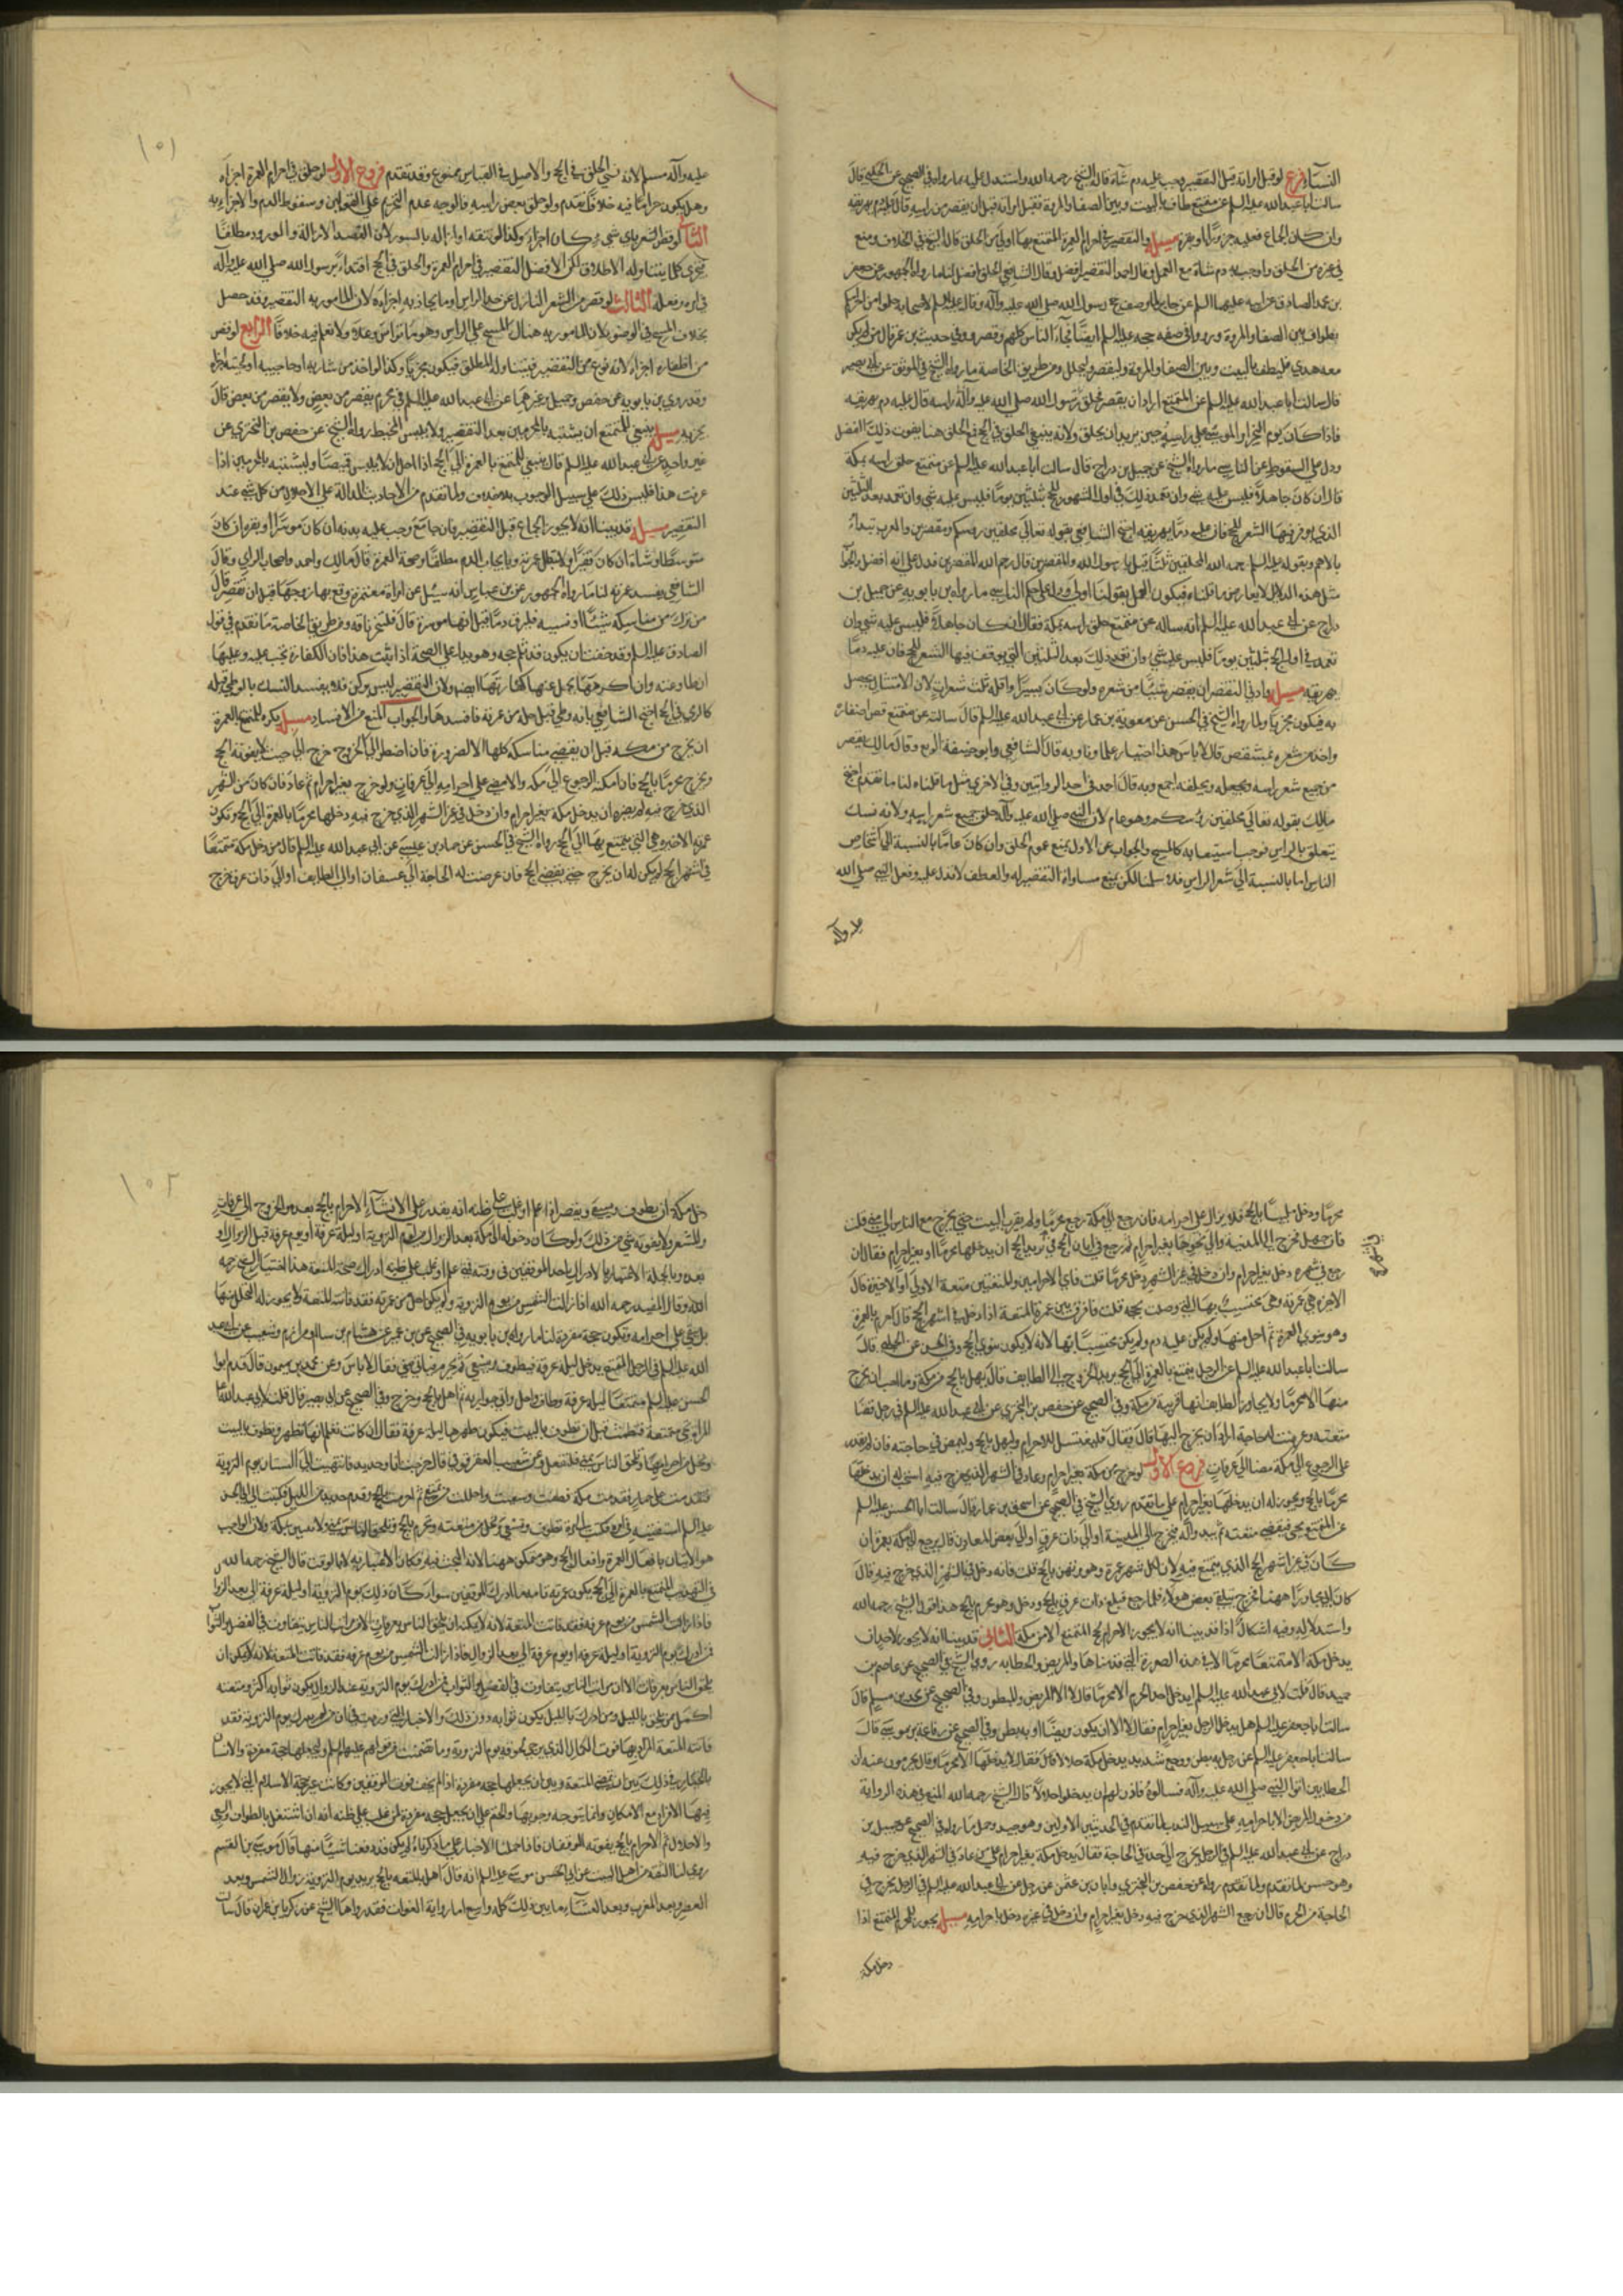 النساء فرع لو قبل امراته قبل التقصير وجب عليه دم شاة قاله الشيخ رحمه الله واستدل عليه بما رواه في الصحيح عن الحلبي قال
سالت ابا عبد الله عليه السلم عن متمتع طاف بالبيت وبين الصفا والمروة فقبل امراته قبل ان يقصر من راسه قال عليه دم يهريقه
وان كان الجماع فعليه جزور او بقرة مسئله والتقصير في احرام العمرة المتمتع بها اولى من الحلق قال الشيخ في الخلاف ومنع
في غيره من الحلق واوجب به دم شاة مع العمل وقال احمد التقصير افضل وقال الشافعي الحلق افضل لنا ما رواه الجمهور عن جعفر
بن محمد الصادق عن ابيه عليهما السلم عن جابر لما وصف حج رسول الله صلى الله عليه وآله وقال عليه السلم لاصحابه حلوا من احرامكم
بطواف بين الصفا والمروة وقصروا وفي صفة حجه عليه السلم ايضا فحل الناس كلهم وقصروا وفي حديث بن عمر قال من لم يكن
معه هدي فليطف بالبيت وبين الصفا والمروة وليقصر وليحلل ومن طريق الخاصة ما رواه الشيخ في الموثق عن ابي بصير
قال سالت ابا عبد الله عليه السلم عن المتمتع اراد ان يقصر فحلق راسه قال عليه دم يهريقه
فاذا كان يوم النحر امر الموسى على راسه حين يريد ان يحلق ولانه ينبغي الحلق في الحج فمع الحلق هنا يفوت ذلك الفضل
ودل على السقوط عن الناسي ما رواه الشيخ عن جميل بن دراج قال سالت ابا عبد الله عليه السلم عن متمتع حلق راسه بمكة
قال ان كان جاهلا فليس عليه شي وان تعمد ذلك في اول الشهور للحج بثلثين يوما فليس عليه شي وان تعمد بعد الثلثين
الذي يوفر فيها الشعر للحج فان عليه دما يهريقه احتج الشافعي بقوله تعالى محلقين رؤسكم ومقصرين والعرب تبداء
بالاهم وبقوله عليه السلم رحمه الله المحلقين ثلثا قيل يا رسول الله والمقصرين قال رحم الله المقصرين فدل على انه افضل والجواب
مثل هذه الدلايل لا يعارض ما قلناه فيكون العمل بقولنا اولى ويدل على حكم الناسي ما رواه بن بابويه عن جميل بن
دراج عن ابي عبد الله عليه السلم انه ساله عن متمتع حلق راسه بمكة فقال ان كان جاهلا فليس عليه شي وان
تعمد في اول الحج بثلثين يوما فليس عليه شي وان تعمد ذلك بعد الثلثين التي يوفر فيها الشعر للحج فان عليه دما
يهريقه مسئله وادنى التقصر ان يقصر شيئا من شعره ولو كان يسيرا واقله ثلث شعرات لان الامتثال يحصل
به فيكون مجزيا ولما رواه الشيخ في الحسن عن معوية بن عمار عن ابي عبد الله عليه السلم قال سالته عن متمتع قص اظفاره
واخذ من شعره بمشقص قال لا باس هذا اختيار علماؤنا وبه قال الشافعي وابو حنيفة الربع وقال مالك يقصر
من جميع شعر راسه ويحلقه اجمع وبه قال احمد في احد الروايتين وفي الاخرى مثل ما قلناه لنا ما تقدم احتج
مالك بقوله تعالى محلقين رؤسكم وهو عام لان النبي صلى الله عليه وآله حلق جميع شعر راسه ولانه نسك
يتعلق بالراس فوجب استيعابه كالمسح والجواب عن الاول بمنع عموم الحلق وان كان عاما بالنسبة الى اشخاص
الناس اما بالنسبة الى شعر الراس فلا سلمنا لكن يمنع مساواة التقصير له والعطف لا يدل عليه وفعل النبي صلى الله
عليه وآله
١٥١
عليه وآله مسلم لانه نسى الحلق في الحج والاصل في القياس ممنوع وقد تقدم فروع الاول لو حلق في احرام العمرة اجزاه
وهل يكون حراما فيه خلاف تقدم ولو حلق بعض راسه فالوجه عدم التحريم على القولين وسقوط الدم والاجزاء به
الثاني لو قص الشعر باي شي كان اجزاه وكذا لو نتفه او ازاله بالنورة لان القصد الازالة والمورود مطلقا
فيجزي كلما يتناوله الاطلاق لكن الافضل التقصير في احرام العمرة والحلق في الحج اقتداء برسول الله صلى الله عليه وآله
في امره وفعله الثالث لو قصر من الشعر النازل عن حد الراس او ما يحاذيه اجزاه لان المامور به التقصير وقد حصل
بخلاف المسح في الوضوء لان المامور به هناك المسح على الراس وهو ما تراس وعلا ولا نعلم فيه خلافا الرابع لو قص
من اظفاره اجزاه لانه نوع من التقصير فيتناوله المطلق فيكون مجزيا وكذا لو اخذ من شاربه او حاجبيه او لحيته اجزاه
وقد روى بن بابويه عن حفص وجميل وغيرهما عن ابي عبد الله عليه السلم في محرم يقصر من بعض ولا يقصر من بعض قال
يجزيه مسئله ينبغي للمتمتع ان يتشبه بالمحرمين بعد التقصير ولا يلبس المخيط رواه الشيخ عن حفص بن البختري عن
غير واحد عن ابي عبد الله عليه السلم قال ينبغي للمتمتع بالعمرة الى الحج اذا احل ان لا يلبس قميصا وليتشبه بالمحرمين اذا
عرفت هذا فليس ذلك على سبيل الوجوب بلا خلاف ولما تقدم من الاحاديث الدالة على الاحلال من كل شي عند
التقصير مسئله قد بينا انه لا يجوز الجماع قبل التقصير فان جامع وجب عليه بدنه ان كان موسرا او بقره ان كان
متوسطا وشاة ان كان فقيرا ولا تبطل عمرته وبايجاب الدم مطلقا وصحة العمرة قال مالك واحمد واصحاب الراي وقال
الشافعي يفسد عمرته لنا ما رواه الجمهور عن بن عباس انه سئل عن امراة معتمرة وقع بها زوجها قبل ان تقصر قال
من ترك من مناسكه شيئا او نسيه فليرق دما قيل انها موسرة قال فلتنحر ناقة ومن طريق الخاصة ما تقدم في قول
الصادق عليه السلم وقد خفت ان يكون قد ثلم حجه وهو يدل على الصحة اذا ثبت هذا فان الكفارة تجب عليه وعليها
ان طاوعته وان اكرهها تحمل عنها كفارتها ايضا ولان التقصير ليس بركن فلا يفسد النسك بالوطي قبله
كالرمي في الحج احتج الشافعي بانه وطي قبل حله من عمرته فافسدها والجواب المنع من الافساد مسئله يكره للمتمتع بالعمرة
ان يخرج من مكه قبل ان يقضي مناسكه كلها الا لضرورة فان اضطر الى الخروج خرج الى حيث لا يفوته الحج
ويخرج محرما بالحج فان امكنه الرجوع الى مكه والا مضى على احرامه الى عرفات ولو خرج بغير احرام ثم عاد فان كان من الشهر
الذي خرج فيه لم يضره ان يدخل مكة بغير احرام وان دخل في غير الشهر الذي خرج فيه دخلها محرما بالعمرة الى الحج وتكون
عمرته الاخيره هي التي يتمتع بها الى الحج رواه الشيخ في الحسن عن حماد بن عيسى عن ابي عبد الله عليه السلم قال من دخل مكة متمتعا
في اشهر الحج لم يكن له ان يخرج حتى يقضي الحج فان عرضت له الحاجة الى عسفان او الى الطايف او الى ذات عرق خرج
محرما ودخل ملبيا بالحج فلا يزال على احرامه فان رجع الى مكة رجع محرما ولم يقرب البيت حتى يخرج مع الناس الى منى قلت
فان جهل فخرج الى المدينة والى نحوها بغير احرام ثم رجع في ابان الحج في اشهر الحج يريد الحج ان يدخلها محرما او بغير احرام فقال ان
رجع في شهره دخل بغير احرام وان دخل في غير الشهر دخل محرما قلت فاي الاحرامين والمتعتين متعة الاولى او الاخيرة قال
الاخيره هي عمرته وهي المحتسب بها التي وصلت بحجه قلت فما فرق بين عمرة المتعة اذا دخل في اشهر الحج قال احرم بالعمرة
وهو ينوي العمرة ثم احل منها ولم يكن عليه دم ولم يكن محتسبا بها لانه لا يكون ينوي الحج وفي الحسن عن الحلبي قال
سالت ابا عبد الله عليه السلم عن الرجل يتمتع بالعمرة الى الحج يريد الخروج الى الطايف قال يهل بالحج من مكة وما احب ان يخرج
منها الا محرما ولا يجاوز الطايف انها قريبة من مكة وفي الصحيح عن حفص بن البختري عن ابي عبد الله عليه السلم في رجل قضى
متعته وعرضت له حاجة اراد ان يخرج اليها قال فقال فليغتسل للاحرام وليهل بالحج وليمض في حاجته فان لم يقدر
على الرجوع الى مكة مضى الى عرفات فروع الاول لو خرج من مكة بغير احرام وعاد في الشهر الذي خرج فيه استحب له ان يدخلها
محرما بالحج ويجوز له ان يدخلها بغير احرام على ما تقدم روى الشيخ في الصحيح عن اسحق بن عمار قال سالت ابا الحسن عليه السلم
عن المتمتع يجي فيقضي متعته ثم تبدو له فيخرج الى المدينة او الى ذات عرق او الى بعض المعادن قال يرجع الى مكة بعمرة ان
كان في غير الشهر الذي يتمتع فيه لان لكل شهر عمرة وهو مرتهن بالحج قلت فانه دخل في الشهر الذي خرج فيه قال
كان ابي مجاورا ههنا فخرج يتلقى بعض هولاء فلما رجع فبلغ ذات عرق احرم من ذات عرق بالحج ودخل وهو محرم بالحج هذا قول الشيخ رحمه الله
واستدلاله وفيه اشكال اذ قد بينا انه لا يجوز الاحرام لحج التمتع الا من مكة الثاني قد بينا انه لا يجوز لاحد ان
يدخل مكة الا متمتعا محرما الا في هذه الصورة التي قدمناها والمريض والحطابة روى الشيخ في الصحيح عن عاصم بن
حميد قال قلت لابي عبد الله عليه السلم ايدخل احد الحرم الا محرما قال لا الا المريض والمبطون وفي الصحيح عن محمد بن مسلم قال
سالت ابا جعفر عليه السلم هل يدخل الرجل بغير احرام فقال لا الا ان يكون مريضا او به بطن وفي الصحيح عن رفاعة بن موسى قال
سالت ابا جعفر عليه السلم عن رجل به بطن ووجع شديد يدخل مكة حلالا قال فقال لا يدخلها الا محرما وقال يحرمون عنه ان
الحطابين اتوا النبي صلى الله عليه وآله فسالوه فاذن لهم ان يدخلوا حلالا قال الشيخ رحمه الله المنع في هذه الرواية
من دخول المريض الا باحرام على سبيل الندب لما تقدم في الحديثين الاولين وهو جيد وحمل ما رواه في الصحيح عن جميل بن
دراج عن ابي عبد الله عليه السلم في الرجل يخرج الى جدة في الحاجة فقال يدخل مكة بغير احرام على من عاد في الشهر الذي خرج فيه
وهو حسن لما تقدم ولما رواه عن حفص بن البختري وابان بن عثمن عن رجل عن ابي عبد الله عليه السلم في الرجل يخرج في
الحاجة من الحرم قال ان رجع الشهر الذي خرج فيه دخل بغير احرام وان دخل في غيره دخل باحرام مسئله يجوز للمحرم المتمتع اذا
دخل مكة
١٥٢
دخل مكة ان يطوف ويسعى ويقصر اذا علم او غلب على ظنه انه يقدر على الانشاء الاحرام بالحج بعده والخروج الى عرفات
والمشعر ولا يفوته شي من ذلك ولو كان دخوله الى مكة بعد الزوال من يوم التروية او ليلة عرفة او يوم عرفة قبل الزوال او
بعده وبالجملة الاعتبار بالادراك باحد الموقفين في وقته فمتى علم او غلب على ظنه ادراك صحت المتعة هذا اختيار الشيخ رحمه
الله وقال المفيد رحمه الله اذا زالت الشمس من يوم التروية ولم يكن احل من عمرته فقد فاتته المتعة ولا يجوز له التحلل منها
بل يبقى على احرامه وتكون حجة مفردة لنا ما رواه بن بابويه في الصحيح عن بن عمير عن هشام بن سالم ومرازم وشعيب عن ابي عبد
الله عليه السلم في الرجل المتمتع يدخل ليلة عرفة فيطوف ويسعى ثم يحرم فياتي منى فقال لا باس وعن محمد بن ميمون قال قدم ابو
الحسن عليه السلم متمتعا ليلة عرفة وطاف واحل واتى جواريه ثم اهل بالحج وخرج وفي الصحيح عن ابي بصير قال قلت لابي عبد الله
المراة تجي متمتعة فتطمث قبل ان تطوف بالبيت فيكون طهرها ليلة عرفة فقال ان كانت تعلم انها تطهر وتطوف بالبيت
وتحل من احرامها وتلحق الناس بمنى فلتفعل وعن شعيب العقرقوفي قال خرجت انا وحديد فانتهينا الى البستان يوم التروية
فتقدمت على حمار فقدمت مكة فطفت وسعيت واحللت من تمتعي ثم احرمت بالحج وقدم حديد من الليل فكتبت الى ابي الحسن
عليه السلم استفتيه في امره فكتب الي مره تطوف وتسعى وتحل من متعته وتحرم بالحج ويلحق الناس بمنى ولا تبيتن بمكة ولان الواجب
هو الاتيان بافعال العمرة وافعال الحج وهو ممكن ههنا لانه البحث فيه فكان الاعتبار به لا بالوقت قال الشيخ رحمه الله
في التهذيب المتمتع بالعمرة الى الحج يكون عمرته تامة ما ادرك الموقفين سواء كان ذلك يوم التروية او ليلة عرفة الى بعد الزوال
فاذا زالت الشمس من يوم عرفة فقد فاتت المتعة لانه لا يمكنه ان يلحق الناس بعرفات الا ان مراتب الناس يتفاوت في الفضل والثواب
فمن ادرك يوم التروية او ليلة عرفة او يوم عرفة الى بعد الزوال فاذا زالت الشمس من يوم عرفة فقد فاتت المتعة لانه لا يمكن ان
يلحق الناس بعرفات الا ان مراتب الناس يتفاوت في الفضل والثواب فمن ادرك يوم التروية عند الزوال يكون ثوابه اكثر ومتعته
اكمل ممن يلحق بالليل ومن ادرك بالليل يكون ثوابه دون ذلك والاخبار التي وردت في ان من لم يدرك يوم التروية فقد
فاتته المتعة المراد بها فوت الكمال الذي يرجى بلحوقه يوم التروية وما تضمنت من قولهم عليهم السلم وليجعلها حجة مفردة والانسان
بالخيار في ذلك بين ان يمضي المتعة وبين ان يجعلها حجه مفردة اذا لم يخف فوت الموقفين وكانت غير حجة الاسلام التي لا يجوز
فيها الافراد مع الامكان وانما يتوجه وجوبها والحتم على ان يجعل حجه مفردة لمن غلب على ظنه انه ان اشتغل بالطواف والسعي
والاحلال ثم الاحرام بالحج يفوته الموقفان فاذا حملنا الاخبار على ما ذكرناه لم يكن قد دفعنا شيئا منها قال موسى بن القسم
روى لنا الثقة من اهل البيت عن ابي الحسن موسى عليه السلم انه قال اهل بالمتعه بالحج يريد يوم التروية زوال الشمس وبعد
العصر وبعد المغرب وبعد العشاء ما بين ذلك كله واسع اما رواية الفوات فقد رواها الشيخ عن زكريا بن عمران قال سالت